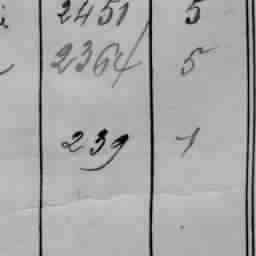 2451 5
2364 5
239 1